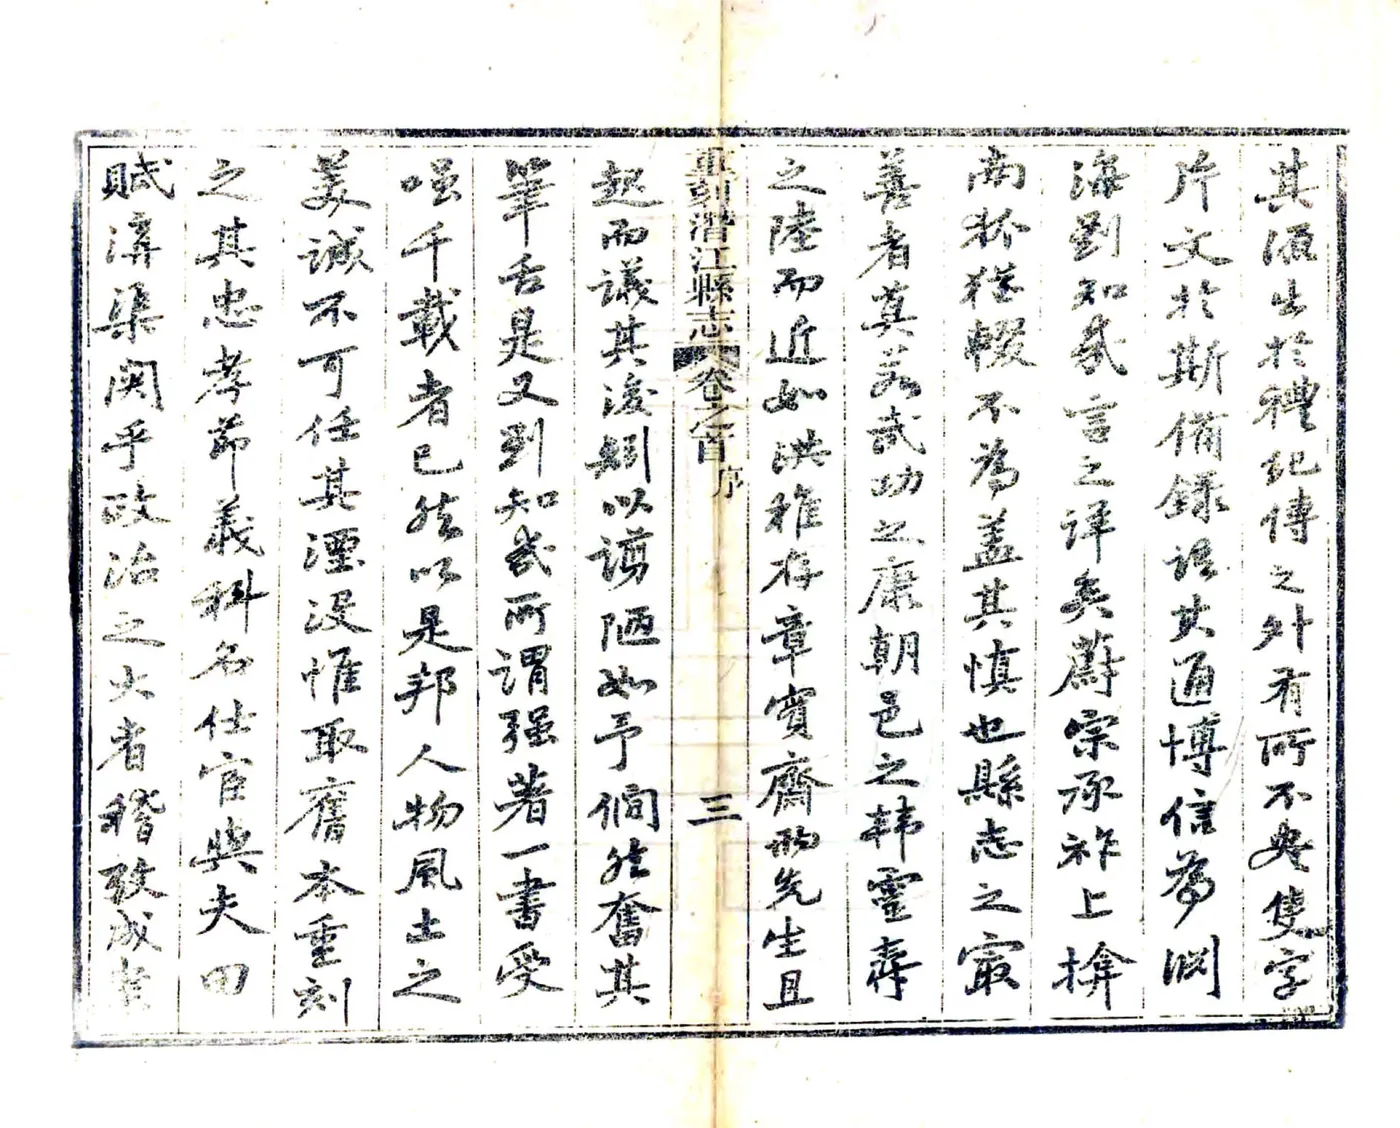 其源出於禮紀傳之外有所不安隻字
片文於斯備錄語其通博信為淵
海劉知幾言之詳矣蔚宗承祚上揜
南狐猶輟不為蓋其慎也縣志之最
善者莫若武功之康朝邑之韓靈壽
之陸而近如洪稚存章實齋兩先生且
重刻潛江縣志 卷之首 序 三
起而議其後矧以謭陋如予僩然奮其
筆舌是又劉知幾所謂强著一書受
嗤千載者已然以是邦人物風土之
美誠不可任其湮沒惟取舊本重刻
之其忠孝節義科名仕宦與夫田
賦溝渠關乎政治之大者稽攷成案